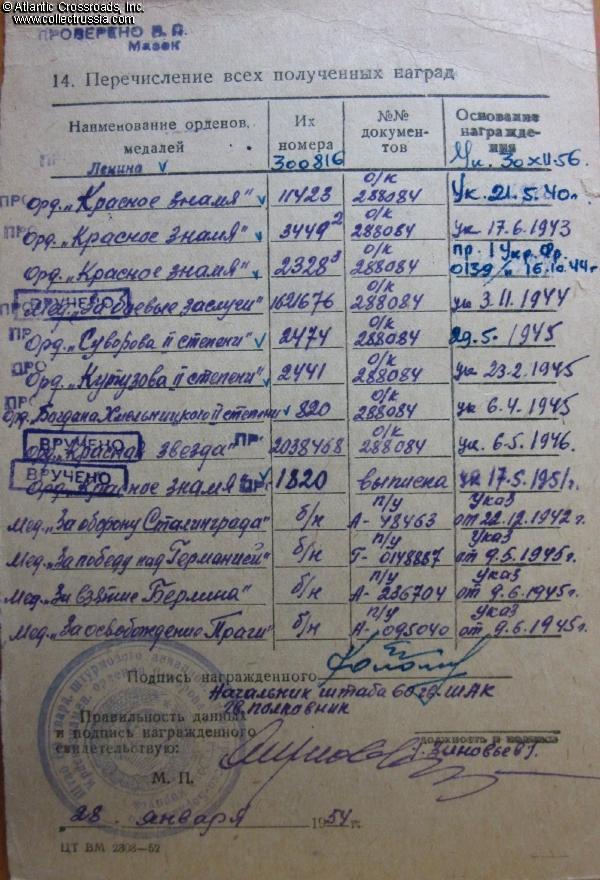 © Atlantic Crossroads, Inc.
www.collectrussia.com
ПРОВЕРЕНО В. П.
14. Перечисление всех полученных наград
Наименование орденов, медалей Их номера №№ документов Основание награждения
Ленина 300816 Ук. 30 XII-56.
Орд. „Красное знамя" 11423 о/к 288084 Ук. 21.5.40г.
Орд. „Красное знамя" 3449² о/к 288084 ук 17.6.1943
Орд. „Красное знамя" 2328³ о/к 288084 пр. 1 Укр. Фр. 0139/н 16.10.44г
ВРУЧЕНО
Мед. „За боевые заслуги" 1621676 о/к 288084 ук 3.11.1944
Орд „Суворова II степени" 2474 о/к 288084 29.5. 1945
Орд. „Кутузова II степени" 2441 о/к 288084 ук 23.2.1945
Орд. Богдана Хмельницкого II степени 820 о/к 288084 ук 6.4.1945
ВРУЧЕНО
Орд „Красная звезда" 2038468 о/к 288084 ук. 6.5.1946
ВРУЧЕНО
Орд. „Красное знамя" 1820 выписка ук 17.5.1951г.
Мед. „За оборону Сталинграда" б/н п/у А-48463 Указ от 22.12.1942г.
Мед. „За победу над Германией" б/н п/у Г-0148887 Указ от 9.5.1945г.
Мед. „За взятие Берлина" б/н п/у А-236704 Указ от 9.6.1945г.
Мед. „За освобождение Праги" б/н п/у А-095040 Указ от 9.6.1945г.
Подпись награжденного
Начальник штаба 60 гв. ШАК
гв. полковник
Правильность данных
и подпись награжденного
свидетельствую:
должность и подпись
Г. Зиновьев
М. П.
28. января 1954г.
ЦТ ВМ 2308—52